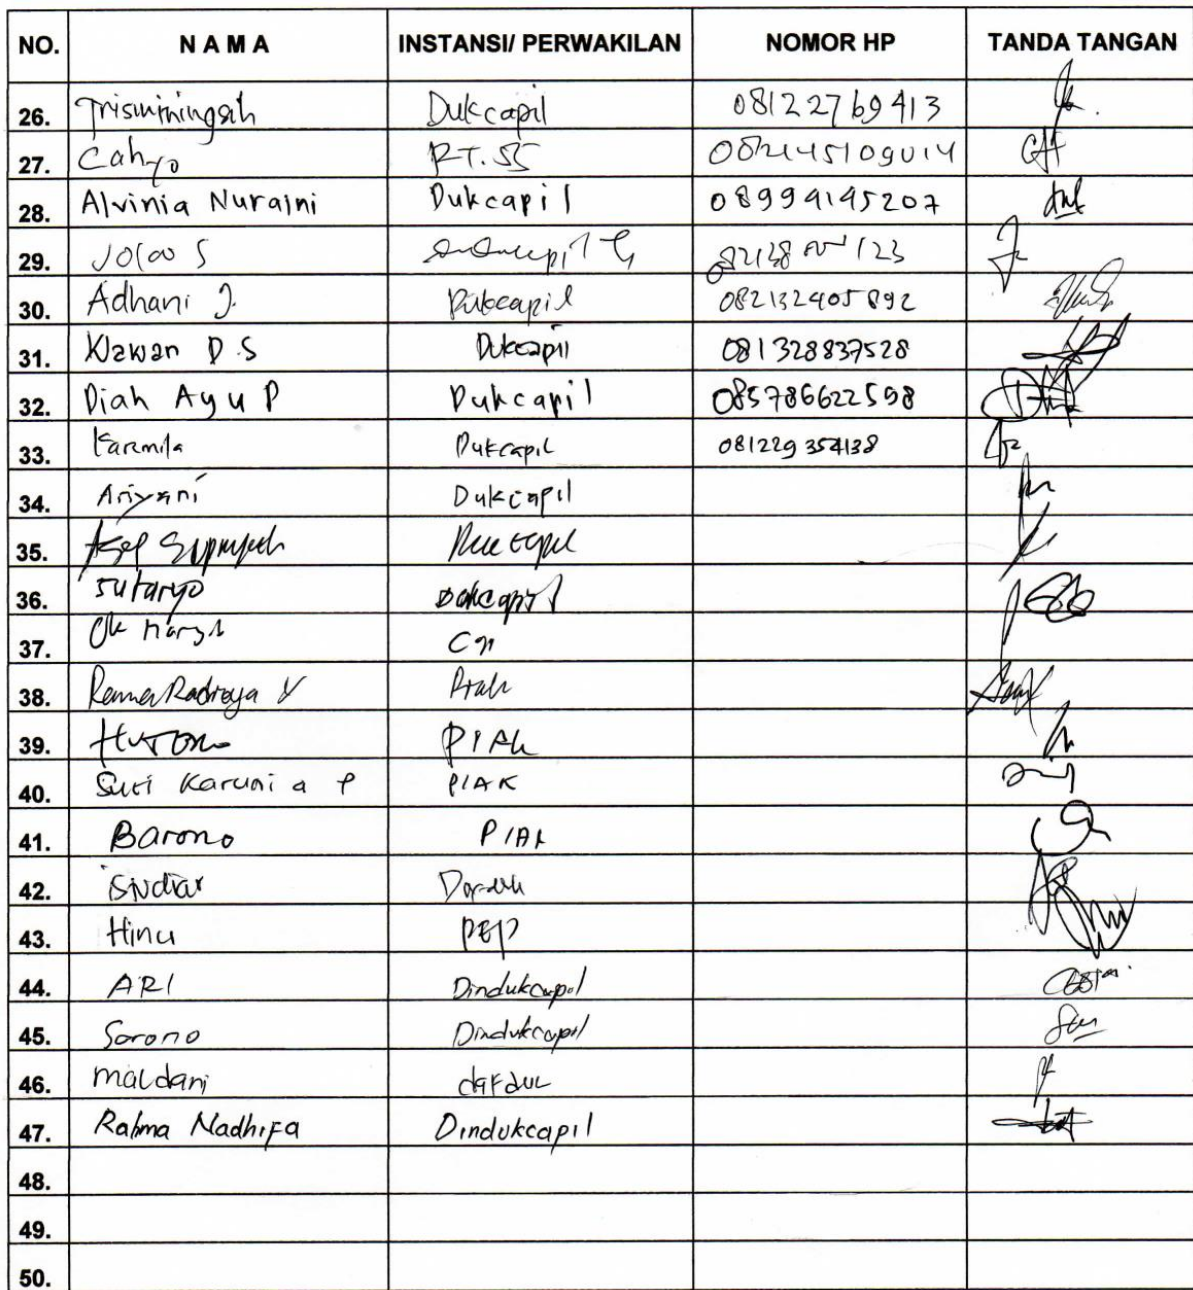 NO. NAMA INSTANSI/ PERWAKILAN NOMOR HP TANDA TANGAN
26. Trisuminingsih Dukcapil 08122769413
27. Cahyo RT. 55
28. Alvinia Nuraini Dukcapil 08994145207
29.
30. Adhani J. Dukcapil 082132405892
31. Wawan D.S Dukcapil 081328837528
32. Diah Ayu P Dukcapil 085786622598
33. Karmila Dukcapil 081229354138
34. Ariyani Dukcapil
35. Asep
36. Sutaryo Dukcapil
37.
38. PIAK
39. PIAK
40. Suti Karunia P PIAK
41. Barono PIAK
42.
43. Hinu
44. ARI Dindukcapil
45. Sorono Dindukcapil
46. Maldani dafduk
47. Rahma Nadhifa Dindukcapil
48.
49.
50.